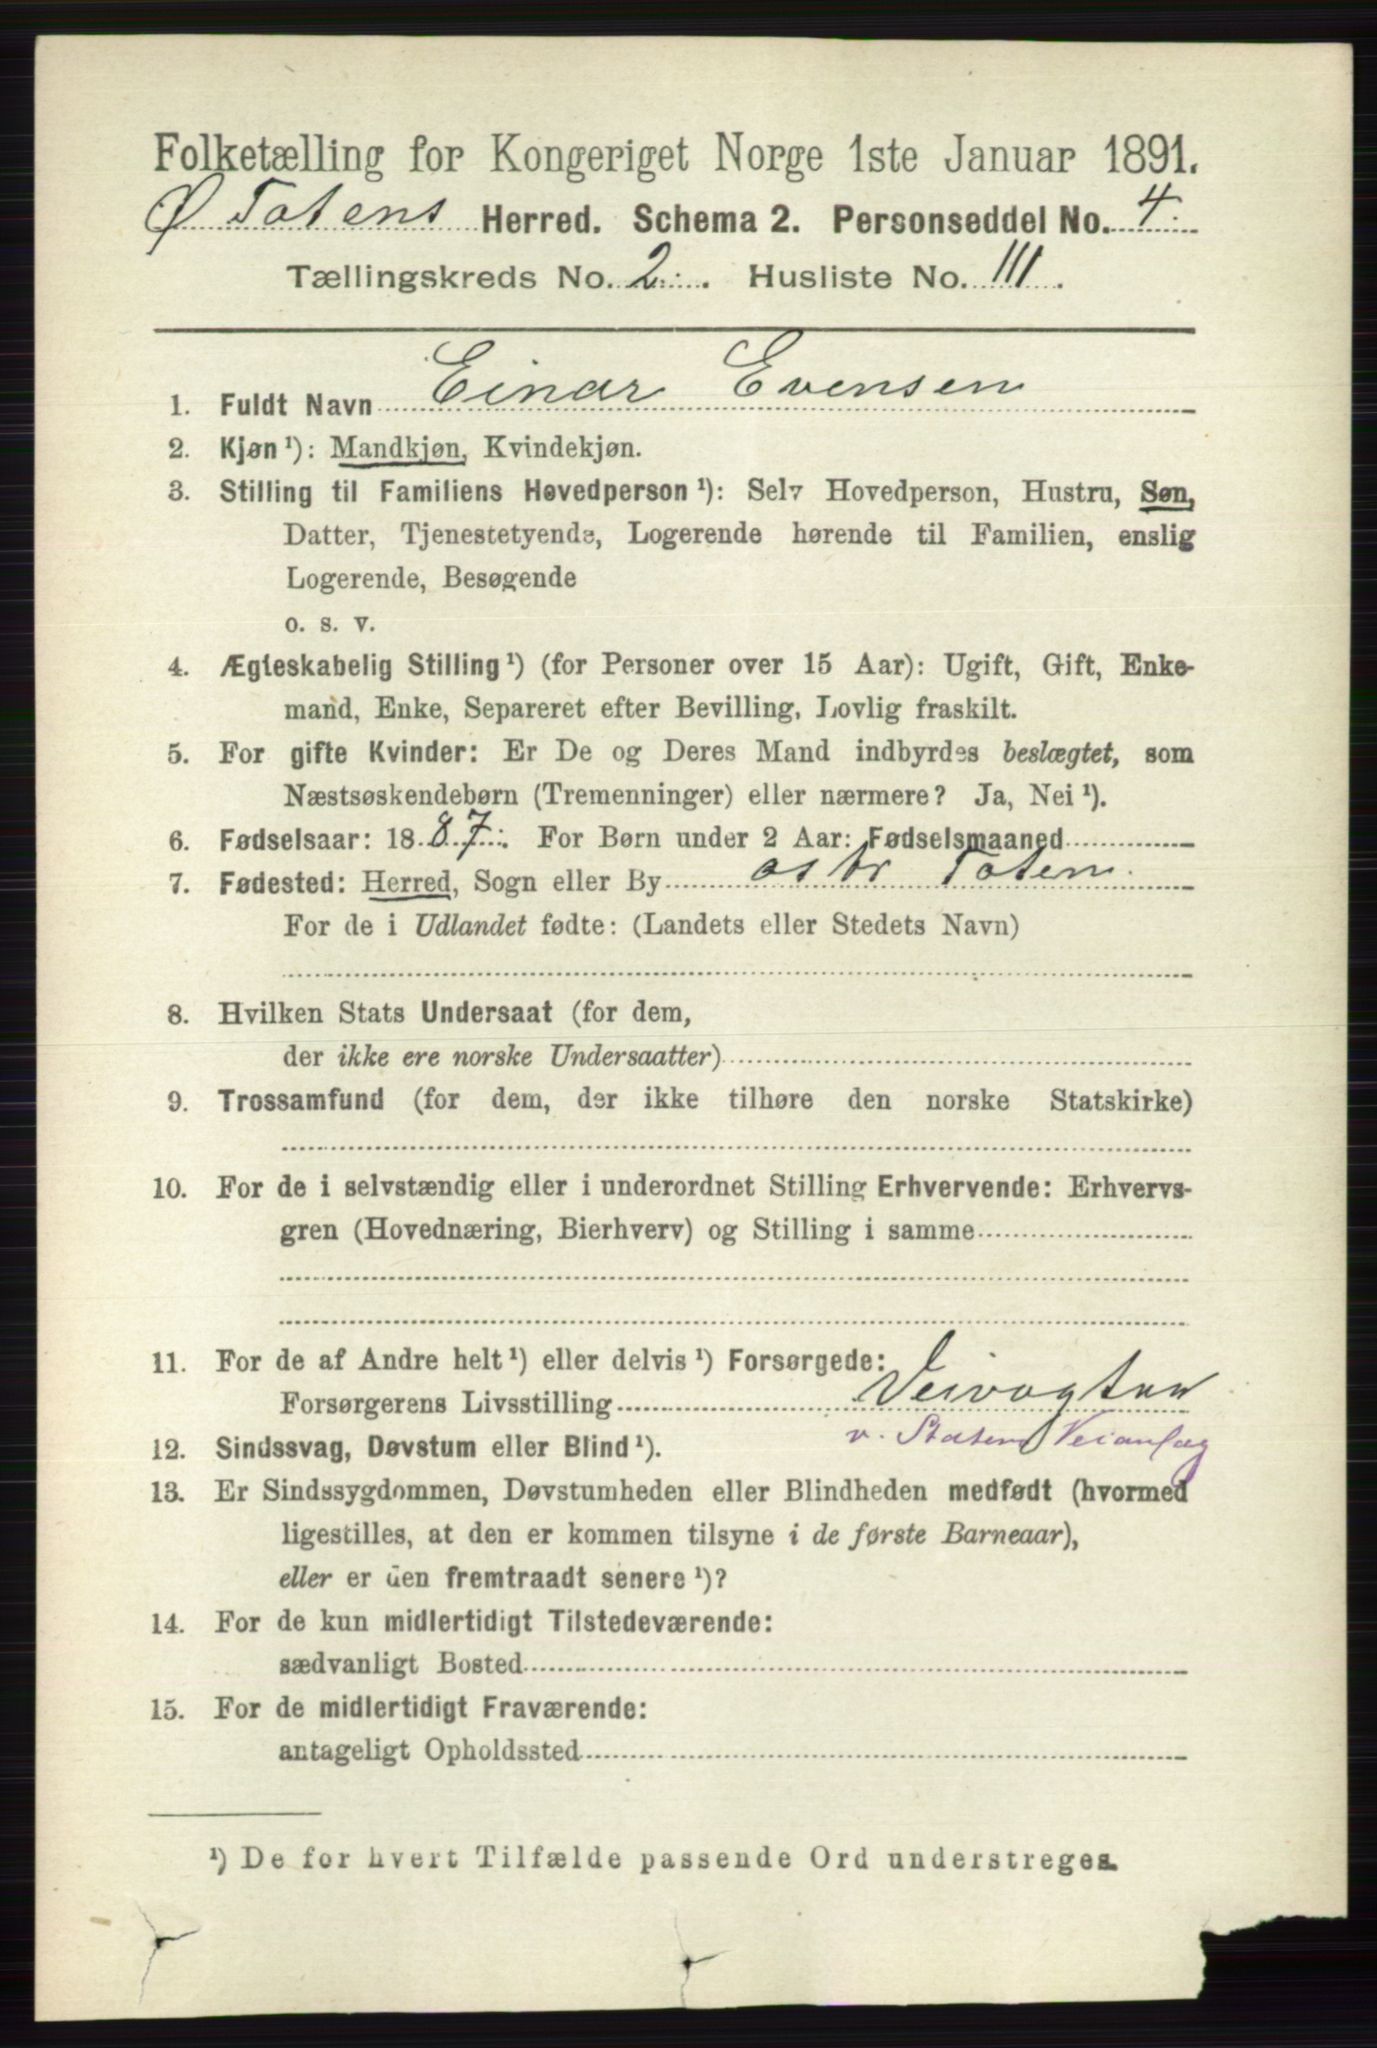 Folketælling for Kongeriget Norge 1ste Januar 1891.
Ø Totens Herred. Schema 2. Personseddel No. 4.
Tællingskreds No. 2. Husliste No. 111.
1. Fuldt Navn Einar Evensen
2. Kjøn ¹): Mandkjøn, Kvindekjøn.
3. Stilling til Familiens Hovedperson ¹): Selv Hovedperson, Hustru, Søn,
Datter, Tjenestetyende, Logerende hørende til Familien, enslig
Logerende, Besøgende
o. s. v.
4. Ægteskabelig Stilling ¹) (for Personer over 15 Aar): Ugift, Gift, Enke-
mand, Enke, Separeret efter Bevilling, Lovlig fraskilt.
5. For gifte Kvinder: Er De og Deres Mand indbyrdes beslægtet, som
Næstsøskendebørn (Tremenninger) eller nærmere? Ja, Nei ¹).
6. Fødselsaar: 1887. For Børn under 2 Aar: Fødselsmaaned
7. Fødested: Herred, Sogn eller By østr Toten.
For de i Udlandet fødte: (Landets eller Stedets Navn)
8. Hvilken Stats Undersaat (for dem,
der ikke ere norske Undersaatter)
9. Trossamfund (for dem, der ikke tilhøre den norske Statskirke)
10. For de i selvstændig eller i underordnet Stilling Erhvervende: Erhvervs-
gren (Hovednæring, Bierhverv) og Stilling i samme
11. For de af Andre helt ¹) eller delvis ¹) Forsørgede:
Forsørgerens Livsstilling Veivogter
v. Statens Veianlæg
12. Sindssvag, Døvstum eller Blind ¹).
13. Er Sindssygdommen, Døvstumheden eller Blindheden medfødt (hvormed
ligestilles, at den er kommen tilsyne i de første Barneaar),
eller er den fremtraadt senere ¹)?
14. For de kun midlertidigt Tilstedeværende:
sædvanligt Bosted
15. For de midlertidigt Fraværende:
antageligt Opholdssted
¹) De for hvert Tilfælde passende Ord understreges.